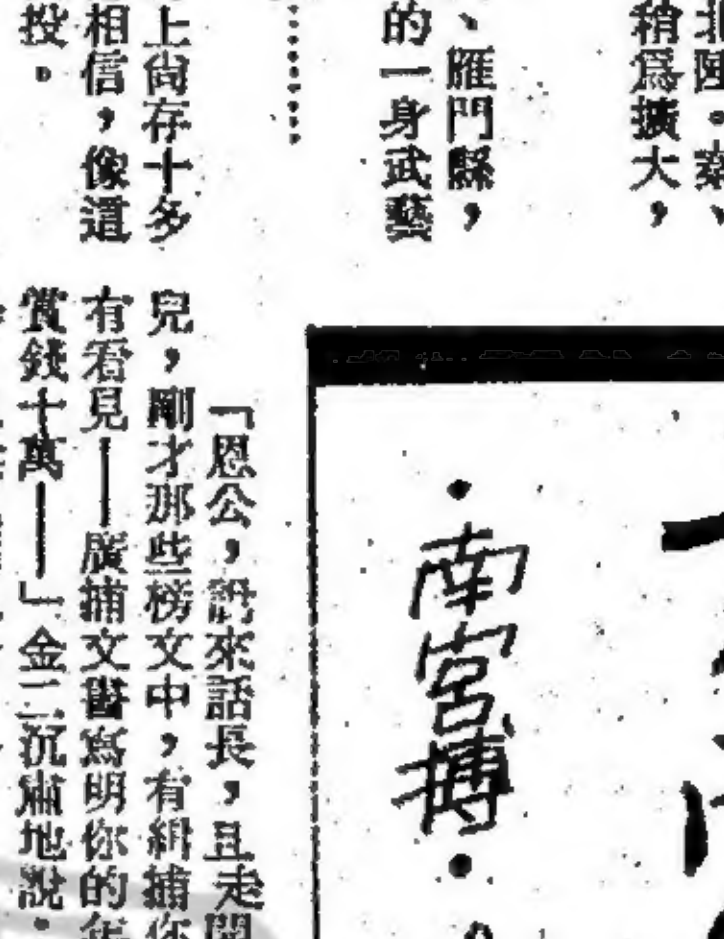 北陲。
稍爲擴大，
、雁門縣，
的一身武藝
・南宮搏・
上尚存十多
相信，像這
投。
「恩公，說來話長，且走開
兒，剛才那些榜文中，有緝捕你
有看見——廣捕文書寫明你的年
賞錢十萬——」金二沉肅地說。